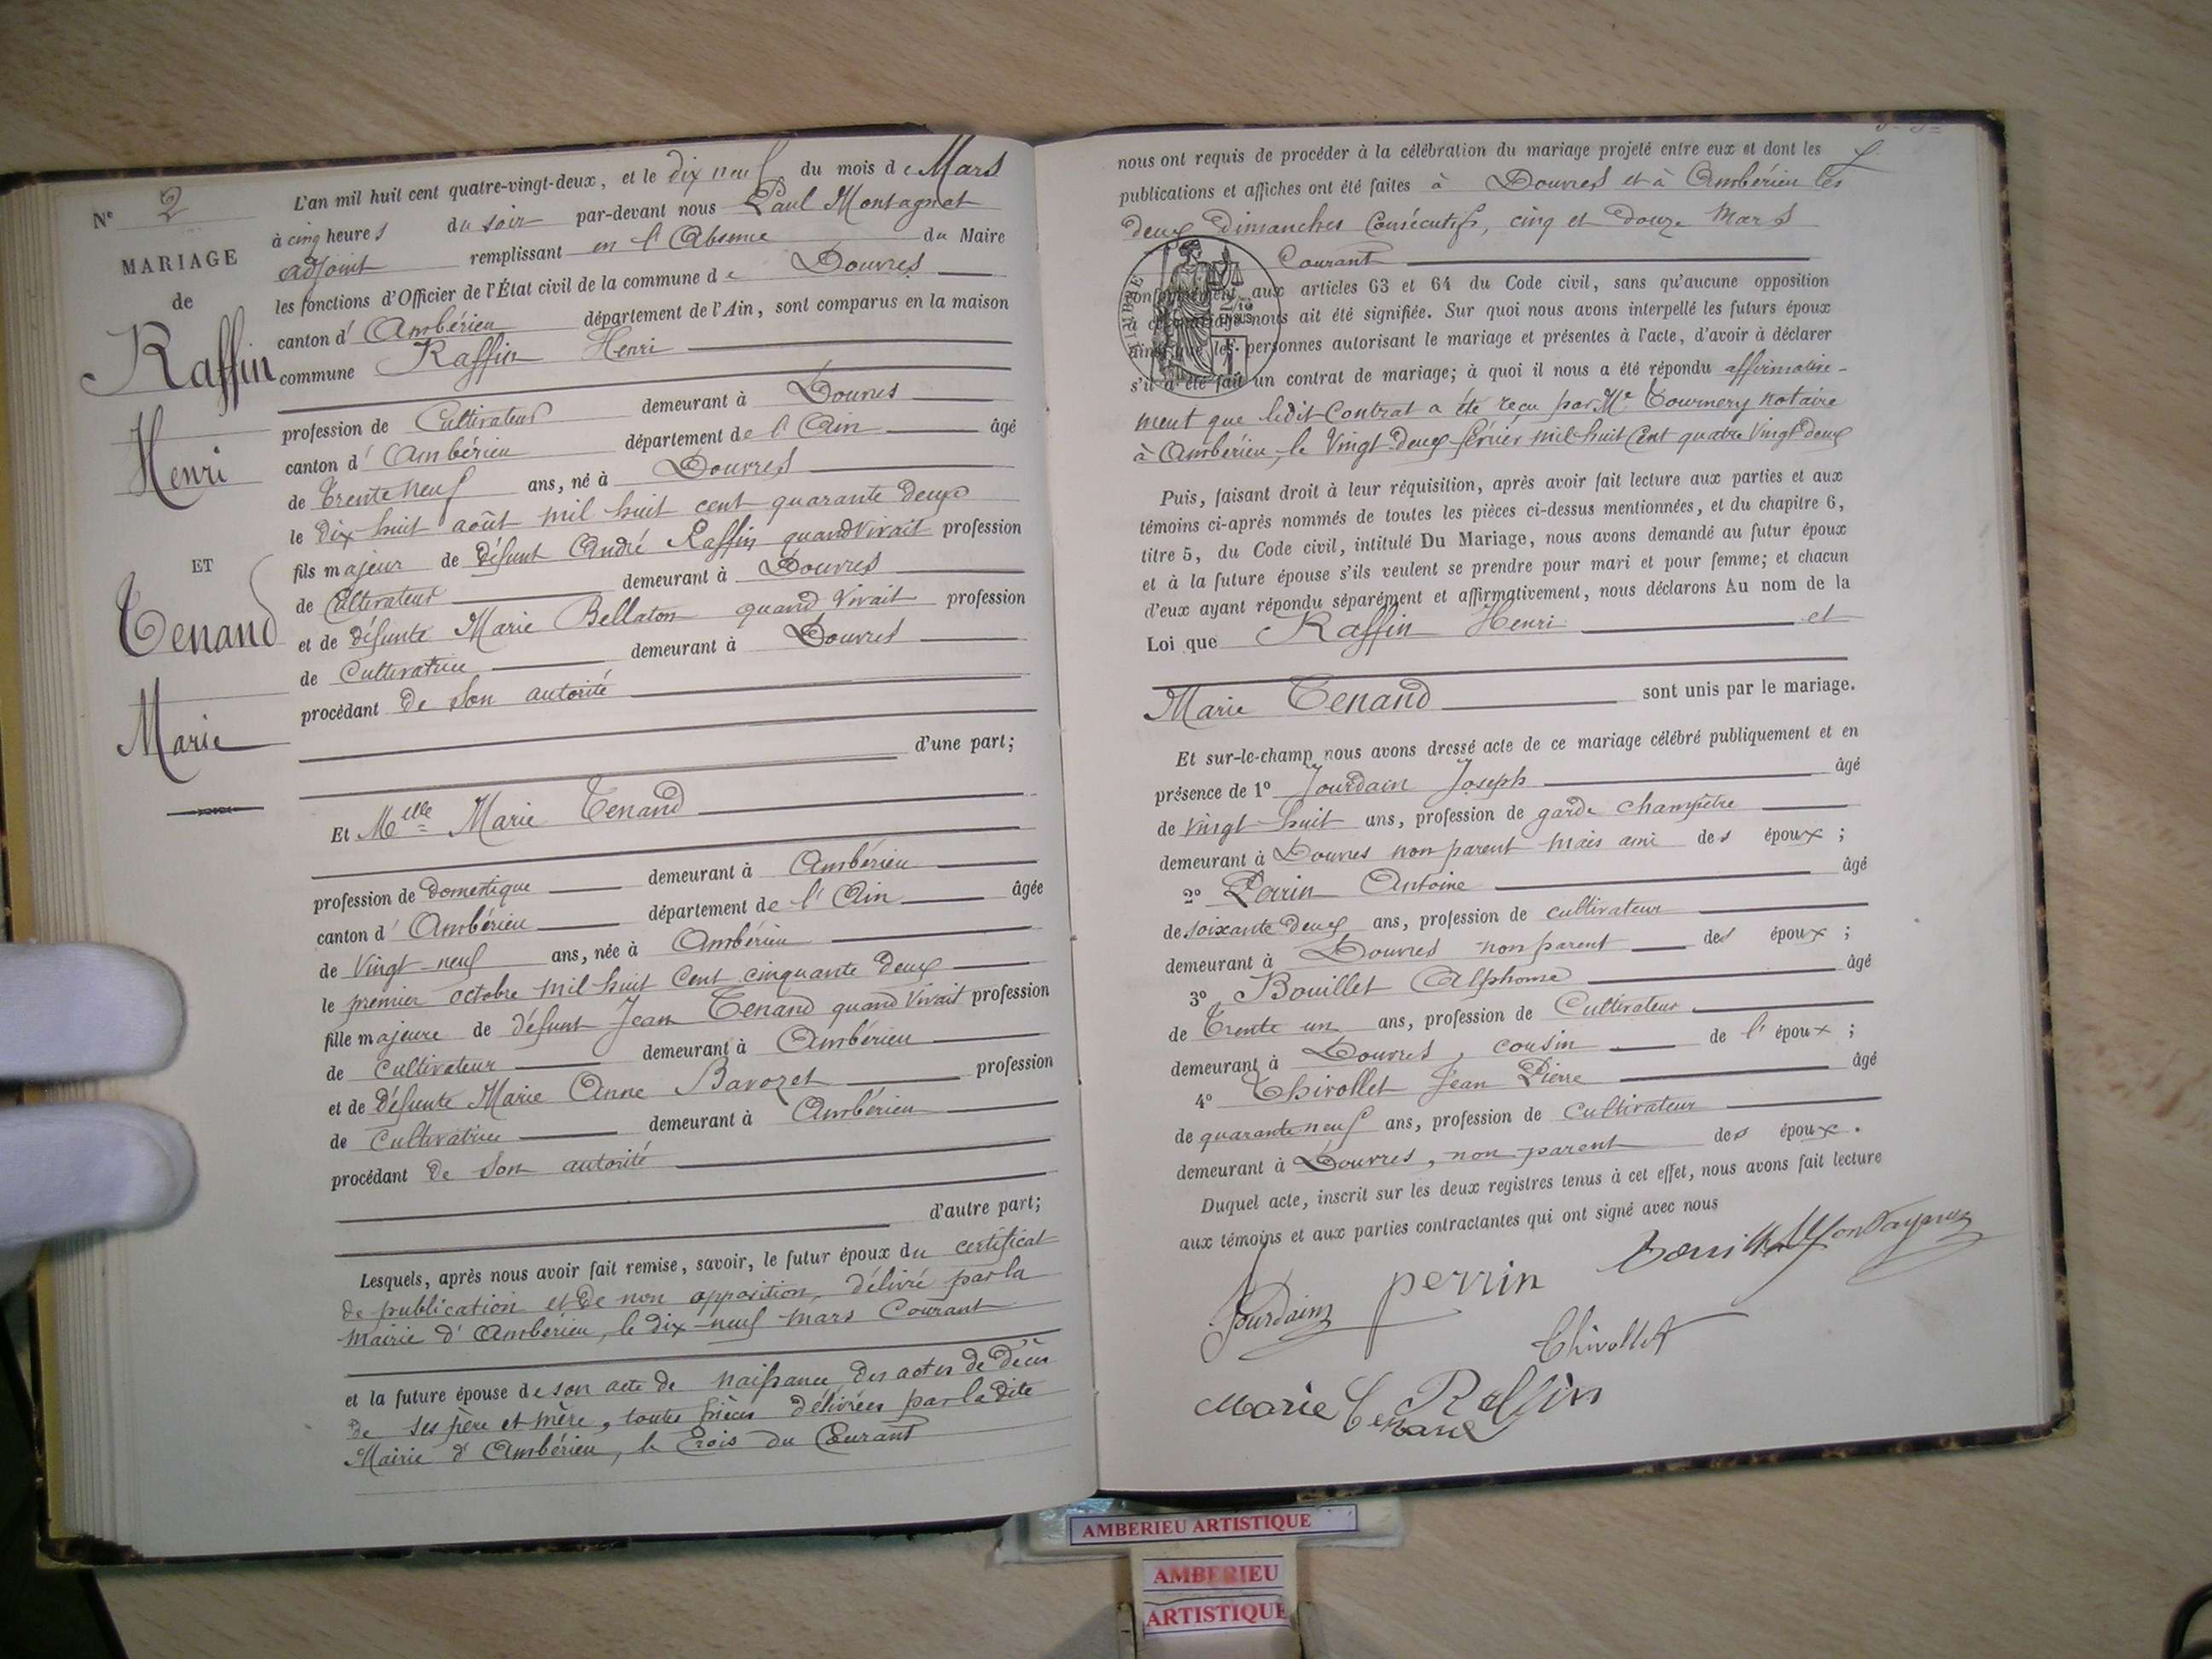 N° 2
MARIAGE
de
Raffin
Henri
ET
Tenand
Marie
L'an mil huit cent quatre-vingt-deux, et le dix neuf du mois de Mars
à cinq heures du soir par-devant nous Paul Montagnat
adjoint remplissant en l'Absence du Maire
les fonctions d'Officier de l'État civil de la commune de Douvres
canton d'Ambérieu département de l'Ain, sont comparus en la maison
commune Raffin Henri
profession de Cultivateur demeurant à Douvres
canton d'Ambérieu département de l'Ain âgé
de Trente neuf ans, né à Douvres
le dix huit août mil huit cent quarante deux
fils majeur de défunt André Raffin quand vivait profession
de Cultivateur demeurant à Douvres
et de défunte Marie Bellaton quand vivait profession
de Cultivatrice demeurant à Douvres
procédant de son autorité
d'une part;
Et Melle Marie Tenand
profession de domestique demeurant à Ambérieu
canton d'Ambérieu département de l'Ain âgée
de Vingt-neuf ans, née à Ambérieu
le premier octobre mil huit cent cinquante deux
fille majeure de défunt Jean Tenand quand vivait profession
de cultivateur demeurant à Ambérieu
et de défunte Marie Anne Bavozet profession
de Cultivatrice demeurant à Ambérieu
procédant de son autorité
d'autre part;
Lesquels, après nous avoir fait remise, savoir, le futur époux du certificat
de publication et de non opposition, délivré par la
mairie d'Ambérieu, le dix-neuf mars Courant
et la future épouse de son acte de naissance des actes de décès
de ses père et mère, toutes pièces délivrées par la dite
Mairie d'Ambérieu, le Trois du Courant
nous ont requis de procéder à la célébration du mariage projeté entre eux et dont les
publications et affiches ont été faites à Douvres et à Ambérieu les
deux dimanches Consécutifs, cinq et douze Mars
Courant
TIMBRE
conformément aux articles 63 et 64 du Code civil, sans qu'aucune opposition
à ce mariage nous ait été signifiée. Sur quoi nous avons interpellé les futurs époux
ainsi que les personnes autorisant le mariage et présentes à l'acte, d'avoir à déclarer
s'il a été fait un contrat de mariage; à quoi il nous a été répondu affirmative-
ment que ledit Contrat a été reçu par Me Tournery notaire
à Ambérieu, le Vingt-Deux février mil huit Cent quatre Vingt deux
Puis, faisant droit à leur réquisition, après avoir fait lecture aux parties et aux
témoins ci-après nommés de toutes les pièces ci-dessus mentionnées, et du chapitre 6,
titre 5, du Code civil, intitulé Du Mariage, nous avons demandé au futur époux
et à la future épouse s'ils veulent se prendre pour mari et pour femme; et chacun
d'eux ayant répondu séparément et affirmativement, nous déclarons Au nom de la
Loi que Raffin Henri et
Marie Tenand sont unis par le mariage.
Et sur-le-champ nous avons dressé acte de ce mariage célébré publiquement et en
présence de 1° Jourdain Joseph âgé
de Vingt-huit ans, profession de garde champêtre
demeurant à Douvres non parent mais ami des époux;
2° Perrin Antoine âgé
de soixante deux ans, profession de cultivateur
demeurant à Douvres non parent des époux;
3° Bouillet Alphonse âgé
de Trente un ans, profession de Cultivateur
demeurant à Douvres, cousin de l'époux;
4° Thivollet Jean Pierre âgé
de quarante neuf ans, profession de Cultivateur
demeurant à Douvres, non parent des époux.
Duquel acte, inscrit sur les deux registres tenus à cet effet, nous avons fait lecture
aux témoins et aux parties contractantes qui ont signé avec nous
Jourdain perrin Bouillet Montagnat
Thivollet
Marie Tenand Raffin
AMBERIEU ARTISTIQUE
AMBERIEU
ARTISTIQUE